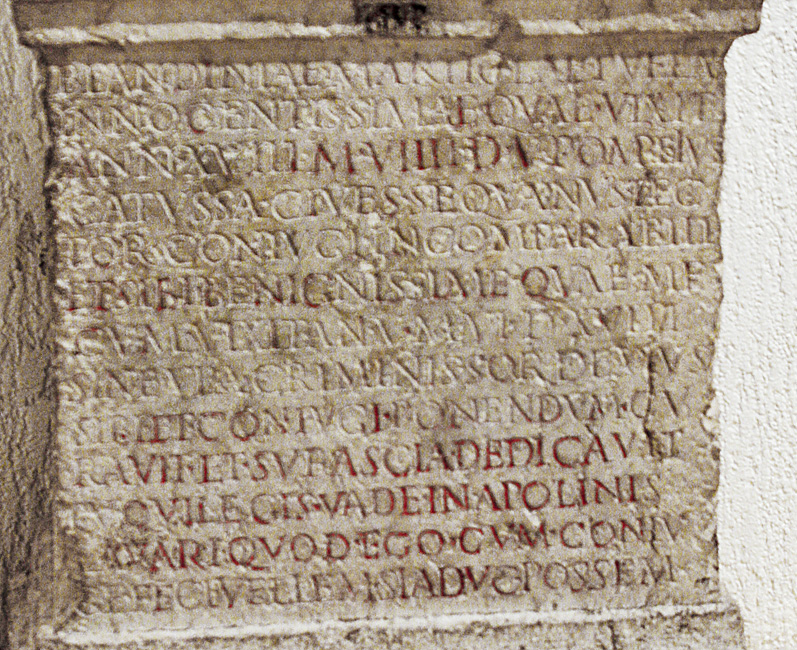 BLANDINIAE·MARTIOLAE PVELLAE
INNOCENTISSIMAE·QVAE·VIXIT
ANN·XVIII·M·VIIII·D·V·POMPEIVS
CATVSSA·CIVES SEQVANVS·TEC
TOR·CONIVGI INCOMPARABILI
ET·SIBI·BENIGNISSIME·QVAE·ME
CVM VIXIT AN·V·M·VI·D·XVIII
SINE VLA CRIMINIS SORDE VIVVS
SIBI ET CONIVGI·PONENDVM·CV
RAVIT ET·SVB ASCIA·DEDICAVIT
TV QVI LEGIS·VADE·IN APOLINIS
LAVARI·QVOD·EGO·CVM·CONIV
GE FECI VELLEM·SI ADVC POSSEM